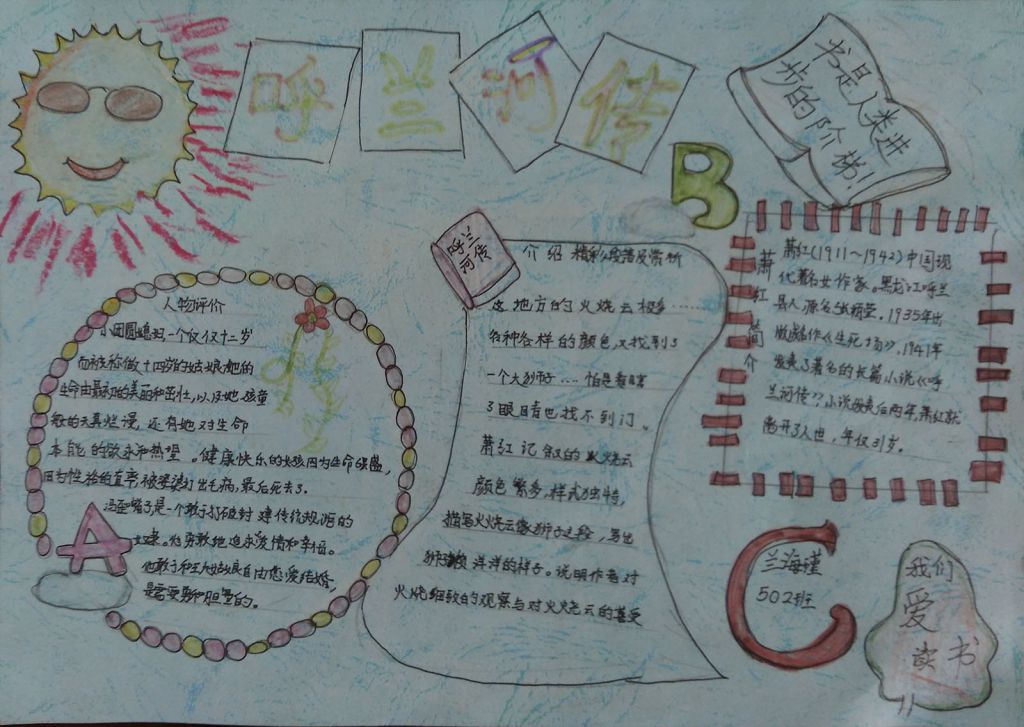 呼兰河传
书是人类进
步的阶梯!
B
呼兰
河传
介绍 精彩段落及赏析
这地方的火烧云极多……
各种各样的颜色,又找到了
一个大狮子……怕是看瞎
了眼睛也找不到了。
萧红记叙的火烧云
颜色繁多,样式独特,
描写火烧云像狮子这段,写出
洋洋的样子。说明作者对
火烧细致的观察与对火烧云的喜爱
萧红简介
萧红(1911~1942)中国现
代著名女作家。黑龙江呼兰
县人 原名张廼莹。1935年出
版成作《生死场》,1941年
发表了著名的长篇小说《呼
兰河传》,小说发表后两年,萧红就
离开了人世,年仅31岁。
人物评价
小团圆媳妇,一个仅仅十二岁
而被称做十四岁的姑娘她的
生命由最初的美丽和茁壮,以及她孩童
般的天真烂漫,还有她对生命
本能的欲求和热望。健康快乐的女孩因为生命
因为性格的直率被婆婆打出毛病,最后死去了。
冯歪嘴子是一个敢于打破封建传统规矩的
他勇敢地追求爱情和幸福。
他敢于和王大姑娘自由恋爱结婚,
是需要勇和胆量的。
A
C
兰海瑾
502班
我们
爱
读书